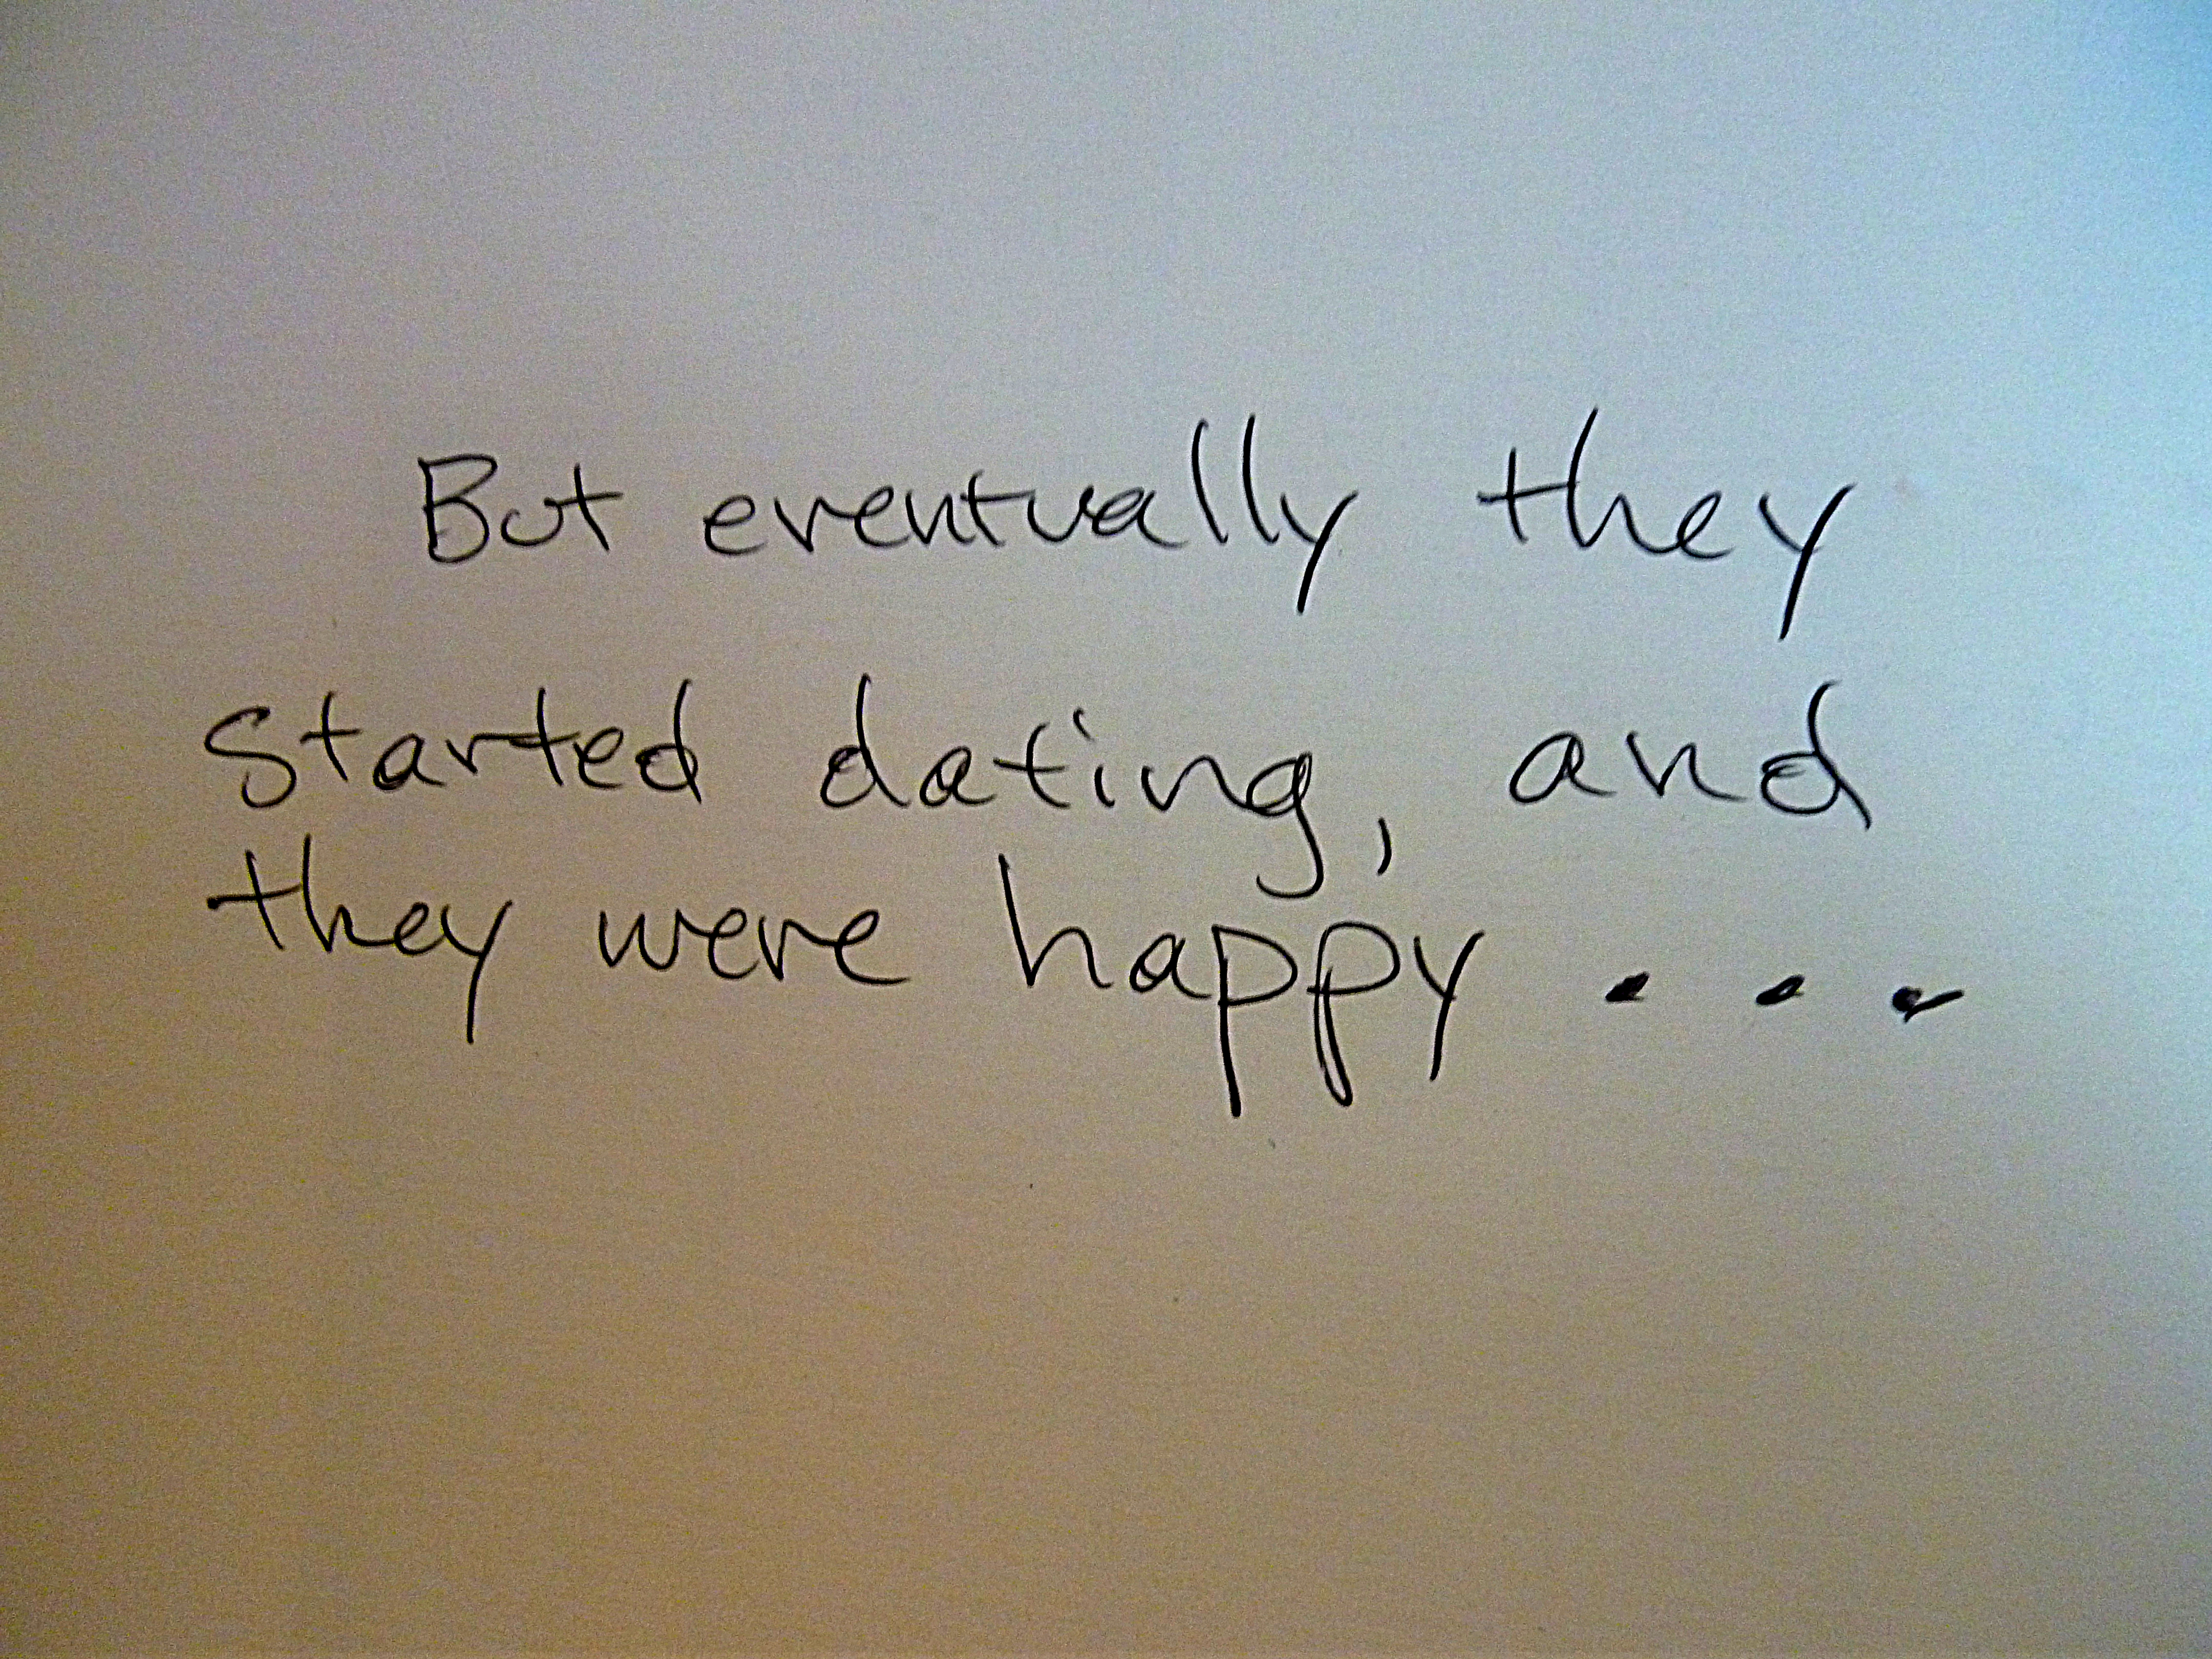 But eventually they
started dating, and
they were happy...